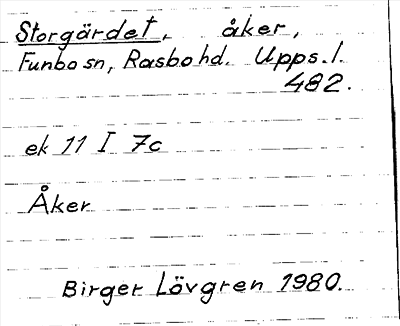 Storgärdet, åker,
Funbo sn, Rasbo hd. Upps. l.
482.
ek 11 I 7c
Åker
Birger Lövgren 1980.